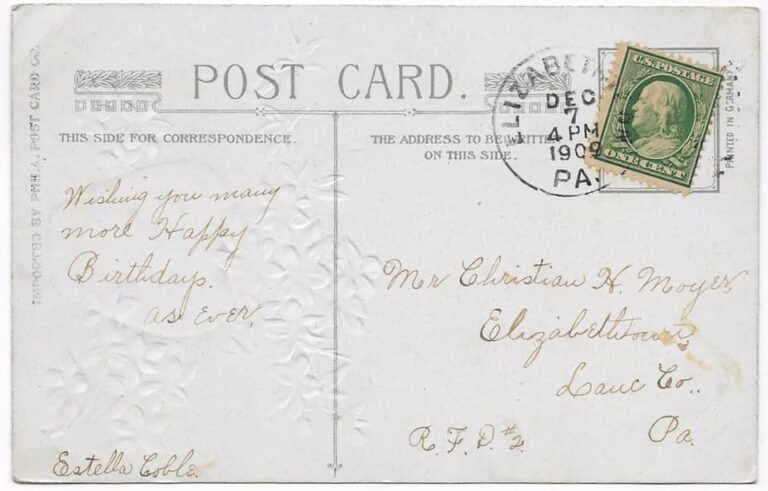 POST CARD.
THIS SIDE FOR CORRESPONDENCE.
THE ADDRESS TO BE WRITTEN
ON THIS SIDE.
IMPORTED BY PHILA. POST CARD CO.
PRINTED IN GERMANY
U.S. POSTAGE
ONE CENT
ELIZABETH
DEC
7
4 PM
1909
PA.
Wishing you many
more Happy
Birthdays.
as ever
Estella Coble.
Mr Christian H. Moyer
Elizabethtown
Lanc Co..
Pa.
R. F. D. #2.